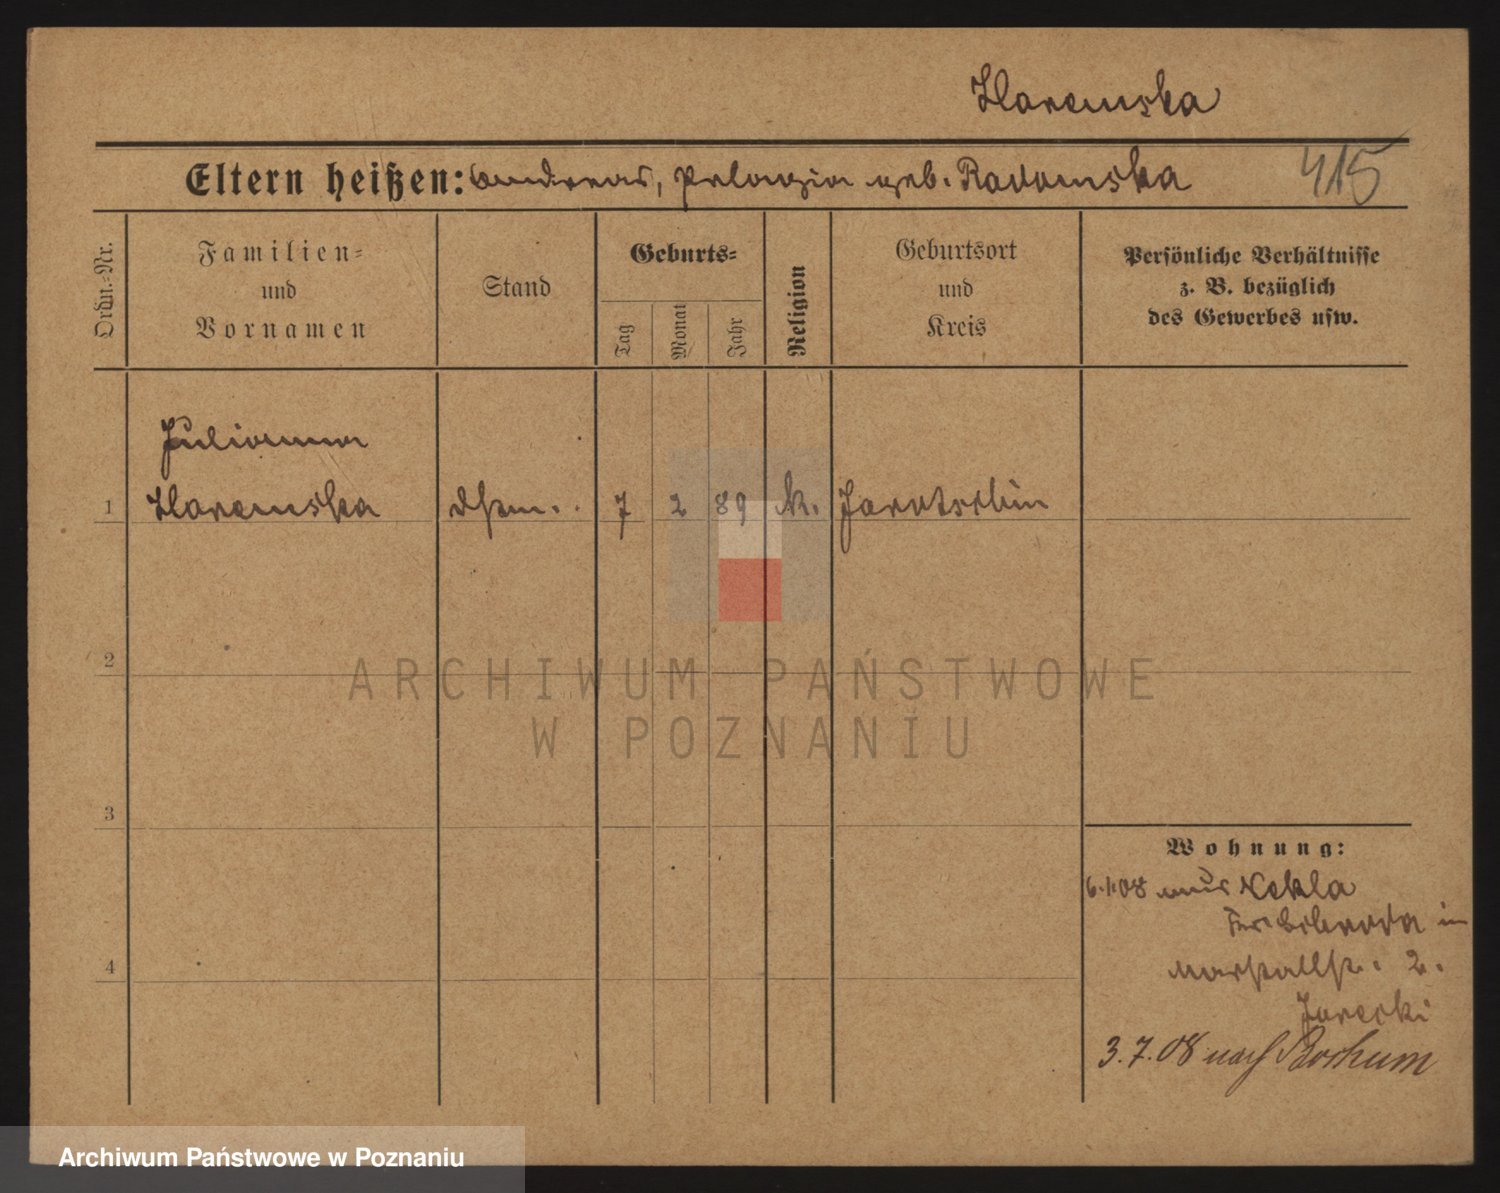 Haremska
Eltern heißen: Andreas, Pelagia geb. Radomska
415
Ordn.-Nr.
Familien-
und
Vornamen
Stand
Geburts-
Tag
Monat
Jahr
Religion
Geburtsort
und
Kreis
Persönliche Verhältnisse
z. B. bezüglich
des Gewerbes usw.
Julianna
1 Haremska dstm. 7 2 89 k. Jarotschin
2
3
4
ARCHIWUM PAŃSTWOWE
W POZNANIU
Wohnung:
6.1.08 aus Nekla
Krs. Schroda in
Marstallst. 2.
Jarecki
3.7.08 nach Bochum
Archiwum Państwowe w Poznaniu